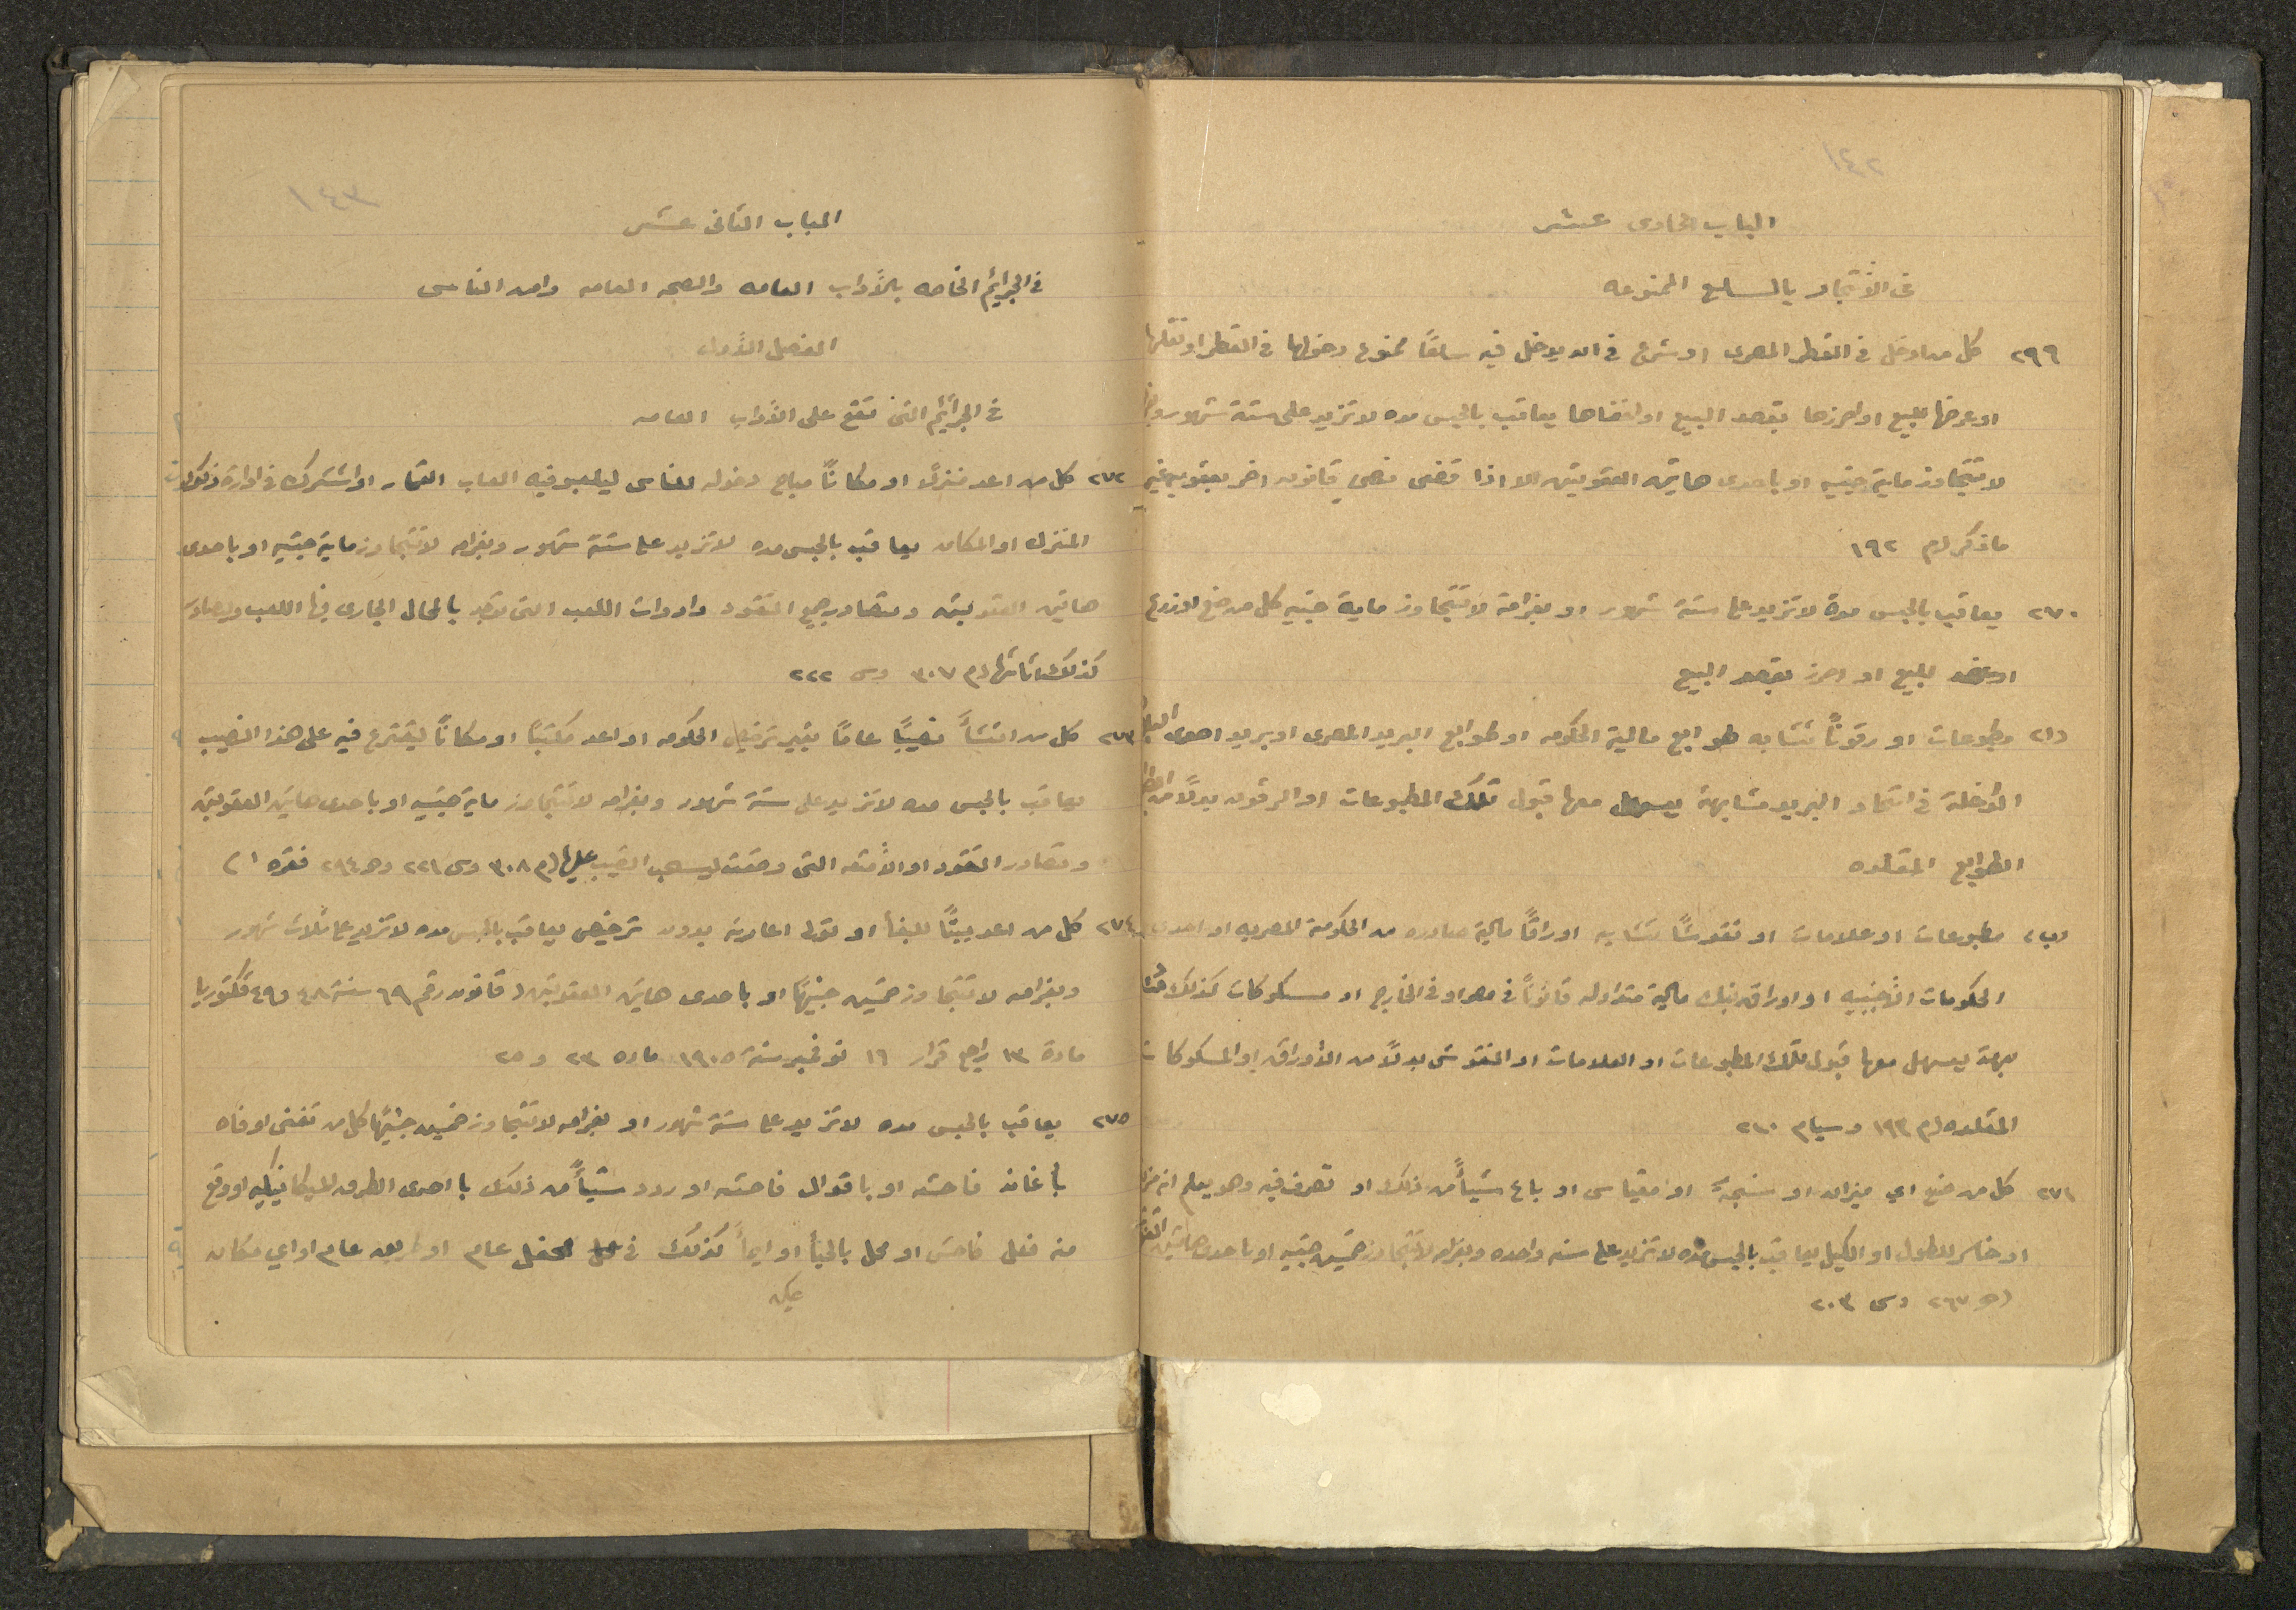 ١٤٢
الباب الحادى عشر
فى الأتجار بالسلع الممنوعه
٢٩٩ كل من ادخل فى القطر المصرى او شرع فى ان يدخل فيه سلعًا ممنوع دخولها فى القطر او نقلها
او عرضها للبيع او احرزها بقصد البيع او اخفاها يعاقب بالحبس مده لا تزيد على ستة شهور
لا تتجاوز ماية جنيه او باحدى هاتين العقوبتين الا اذا قضى نص قانون اخر بعقوبه غير
ما ذكر (م ١٩٢
٢٧٠ يعاقب بالحبس مدة لا تزيد على ستة شهور او بغرامة لا تتجاوز ماية جنيه كل من صنع او وزع
او عرض للبيع او احرز بقصد البيع
(ا) مطبوعات او رقونًا تشابه طوابع مالية الحكومه او طوابع البريد المصرى او بريد احدى
الداخلة فى اتحاد البريد مشابهة يسهل معها قبول تلك المطبوعات او الرقون بدلًا من
الطوابع المقلده
(ب) مطبوعات او علامات او نقوشًا تشابه اوراقًا مالية صادره من الحكومة المصريه او احدى
الحكومات الأجنبيه او اوراق بنك مالية متداوله قانونًا فى مصر او فى الخارج او مسكوكات كذلك
بهة يسهل معها قبول تلك المطبوعات او العلامات او النقوش بدلًا من الأوراق او المسكوكات
المقلده (م ١٩٣ وسيام ٢١٠
٢٧١ كل من صنع اي ميزان او سنجة او مقياس او باع شيأً من ذلك او تصرف فيه وهو يعلم انه
او خاسر للطول او الكيل يعاقب بالحبس مده لا تزيد على سنه واحده وبغرامه لا تتجاوز خمسين جنيه او باحدى هاتين
(هـ ٢٦٧ وس ٢٠٣
١٤٣
الباب الثانى عشر
فى الجرائم الخاصه بالأداب العامه والصحه العامه وامن الناس
الفصل الأول
فى الجرائم التى تقع على الأداب العامه
٢٧٢ كل من اعد منزلًا او مكانًا مباح دخوله للناس ليلعبو فيه العاب القمار او اشترك فى ادارة
المنزل او المكان يعاقب بالحبس مده لا تزيد على ستة شهور وبغرامه لا تتجاوز ماية جنيه او باحدى
هاتين العقوبتين وتصادر جميع النقود وادوات اللعب التى توجد بالمحال الجارى فيها اللعب ويصادر
كذلك اثاثها (م ٣٠٧ وس ٢٢٢
٢٧٣ كل من انشأ نصيبًا عامًا بغير ترخيص الحكومه او اعد مكتبًا او مكانًا ليقترع فيه على هذا النصيب
يعاقب بالحبس مده لا تزيد على ستة شهور وبغرامه لا تتجاوز ماية جنيه او باحدى هاتين العقوبتين
وتصادر النقود او الأمتعه التى وضعت ليسحب النصيب عليها (م ٣٠٨ وس ٢٢١ وهـ ٢٩٤ فقره ١)
٢٧٤ كل من اعد بيتًا للبغأ او تولى ادارته بدون ترخيص يعاقب بالحبس مده لا تزيد على ثلاث شهور
وبغرامه لا تتجاوز خمسين جنيهًا او باحدى هاتين العقوبتين (قانون رقم ٦٩ سنة ٤٨ و٤٩ فكتوريا
مادة ١٣ راجع قرار ١٦ نوفمبر سنة ١٩٠٥ ماده ٢٣ و ٢٥
٢٧٥ يعاقب بالحبس مده لا تزيد على ستة شهور او بغرامه لا تتجاوز خمسين جنيهًا كل من تغنى او فاه
بأغان فاحشه او باقوال فاحشه او ردد شيأً من ذلك باحدى الطرق الميكانيكيه او وقع
منه فعل فاحش او مخل بالحيأ او ايمأ كذلك فى محل محفل عام او طريق عام او اي مكان
يمكن